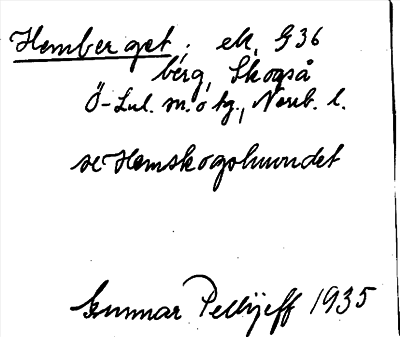 Hemberget, ek. G36
berg, Skogså
Ö-Lul. m. o tg., Norrb. l.
se Hemskogshuvudet
Gunnar Pellijeff 1935